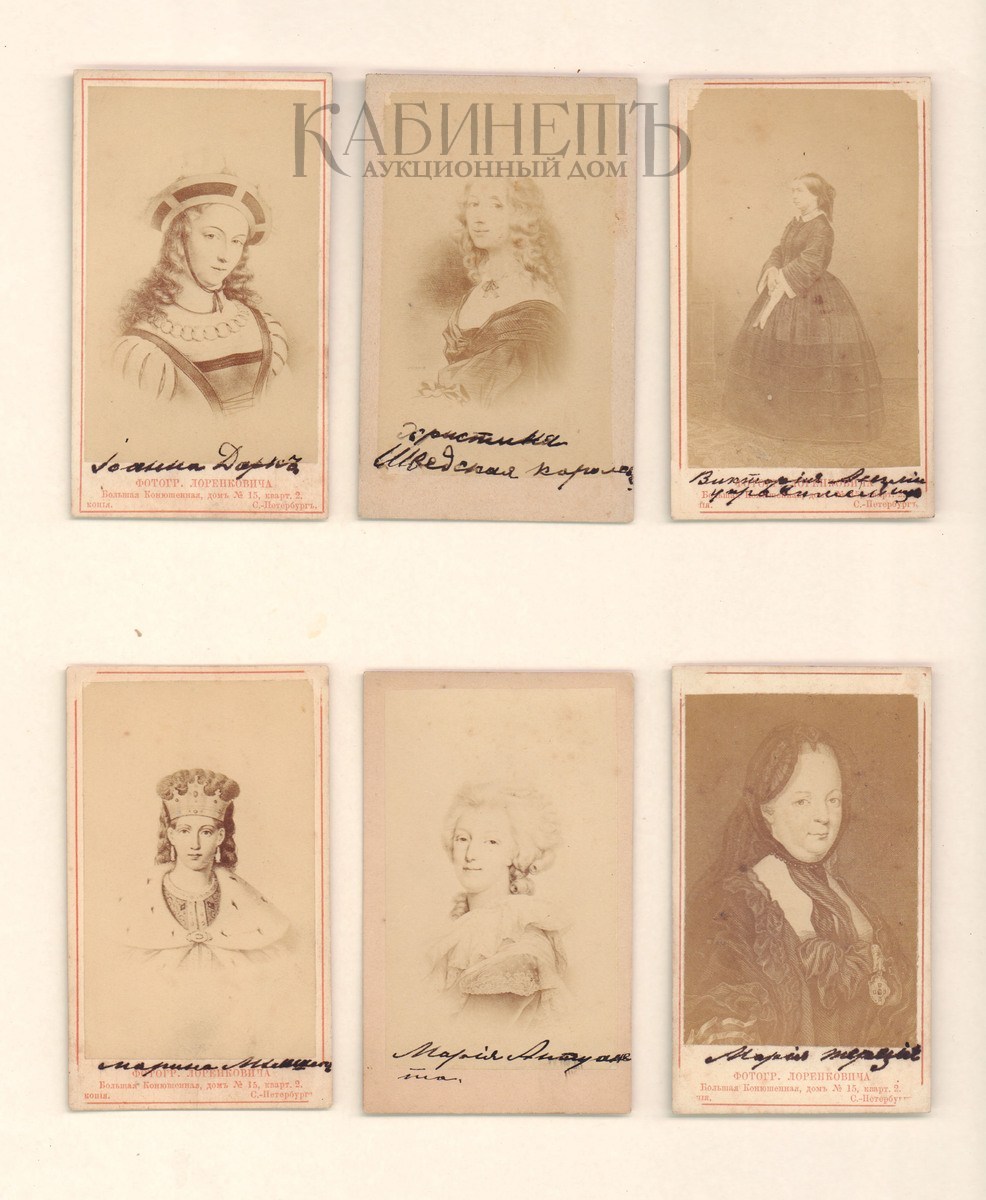 КАБИНЕТЪ
АУКЦИОННЫЙ ДОМ
Іоанна Даркъ
ФОТОГР. ЛОРЕНКОВИЧА
Большая Конюшенная, домъ № 15, кварт. 2.
копія. С.-Петербургъ.
Христина
Шведская королев
Виктория
Большая Конюшенная, домъ № 15, кварт. 2.
пія. С.-Петербургъ.
Марина Мнишекъ
ФОТОГР. ЛОРЕНКОВИЧА
Большая Конюшенная, домъ № 15, кварт. 2.
копія. С.-Петербургъ
Марія Антуане
та.
Марія Терезія
ФОТОГР. ЛОРЕНКОВИЧА
Большая Конюшенная, домъ № 15, кварт. 2.
пія. С.-Петербу